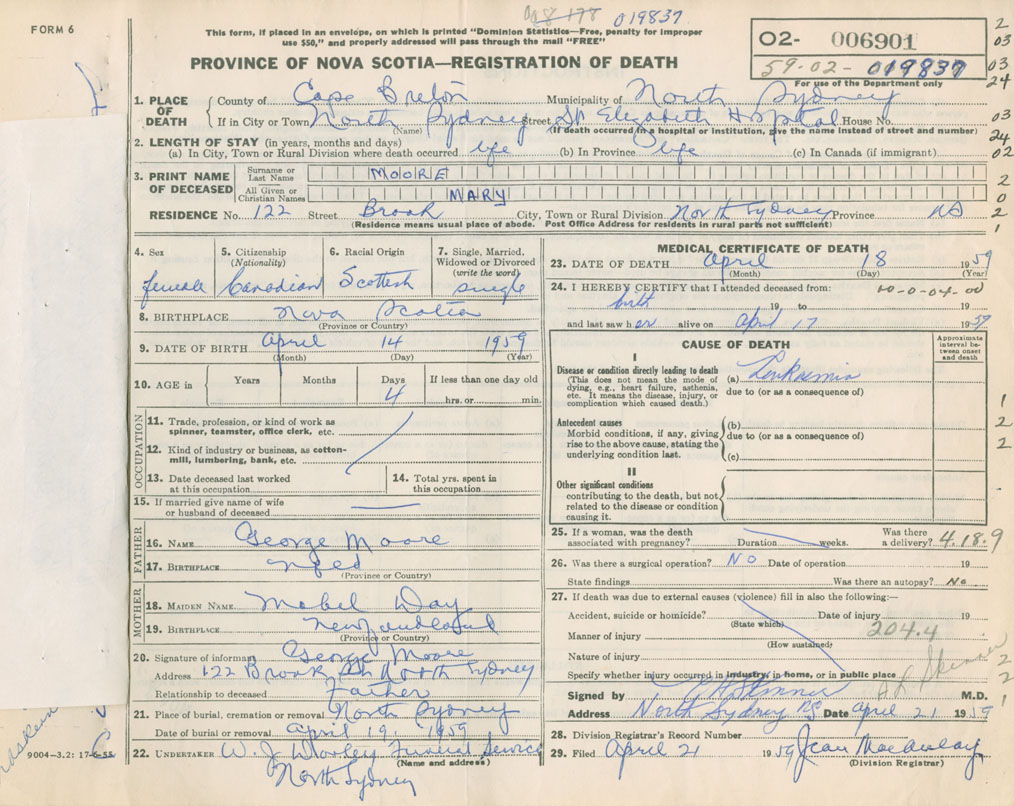 FORM 6
019837
This form, if placed in an envelope, on which is printed "Dominion Statistics—Free, penalty for improper
use $50," and properly addressed will pass through the mail "FREE"
O2- 006901
59-02-019837
For use of the Department only
PROVINCE OF NOVA SCOTIA—REGISTRATION OF DEATH
1. PLACE OF DEATH County of Cape Breton Municipality of North Sydney
If in City or Town North Sydney Street St Elizabeth Hospital House No.
(Name) (If death occurred in a hospital or institution, give the name instead of street and number)
2. LENGTH OF STAY (in years, months and days)
(a) In City, Town or Rural Division where death occurred life (b) In Province life (c) In Canada (if immigrant)
3. PRINT NAME OF DECEASED Surname or Last Name MOORE
All Given or Christian Names MARY
RESIDENCE No. 122 Street Brook City, Town or Rural Division North Sydney Province NS
(Residence means usual place of abode. Post Office Address for residents in rural parts not sufficient)
2
03
03
24
03
24
02
2
0
2
1
4. Sex female
5. Citizenship (Nationality) Canadian
6. Racial Origin Scottish
7. Single, Married, Widowed or Divorced (write the word) single
8. BIRTHPLACE Nova Scotia
(Province or Country)
9. DATE OF BIRTH April 14 1959
(Month) (Day) (Year)
10. AGE in Years Months Days 4 If less than one day old
hrs. or min.
OCCUPATION
11. Trade, profession, or kind of work as
spinner, teamster, office clerk, etc.
12. Kind of industry or business, as cotton-
mill, lumbering, bank, etc.
13. Date deceased last worked
at this occupation
14. Total yrs. spent in
this occupation
15. If married give name of wife
or husband of deceased
FATHER
16. NAME George Moore
17. BIRTHPLACE Nfld
(Province or Country)
MOTHER
18. MAIDEN NAME Mabel Day
19. BIRTHPLACE Newfoundland
(Province or Country)
20. Signature of informant George Moore
Address 122 Brook St North Sydney
Relationship to deceased Father
21. Place of burial, cremation or removal North Sydney
Date of burial or removal April 19, 1959
22. UNDERTAKER W. J. Dooley Funeral Service
(Name and address)
North Sydney
9004-3.2: 17-6-55
MEDICAL CERTIFICATE OF DEATH
23. DATE OF DEATH April 18 1959
(Month) (Day) (Year)
24. I HEREBY CERTIFY that I attended deceased from: 00-0-04-00
birth 19 to 19
and last saw her alive on April 17 1959
CAUSE OF DEATH
Approximate interval between onset and death
I
Disease or condition directly leading to death
(This does not mean the mode of
dying, e.g., heart failure, asthenia,
etc. It means the disease, injury, or
complication which caused death.)
(a) Leukaemia
due to (or as a consequence of)
Antecedent causes
Morbid conditions, if any, giving
rise to the above cause, stating the
underlying condition last.
(b)
due to (or as a consequence of)
(c)
II
Other significant conditions
contributing to the death, but not
related to the disease or condition
causing it.
1
2
2
25. If a woman, was the death
associated with pregnancy? Duration weeks. Was there
a delivery? 4.18.9
26. Was there a surgical operation? No Date of operation 19
State findings Was there an autopsy? No
27. If death was due to external causes (violence) fill in also the following:—
Accident, suicide or homicide? Date of injury 19
(State which)
204.4
Manner of injury
(How sustained)
Nature of injury
Specify whether injury occurred in industry, in home, or in public place
Signed by Skinner M.D.
Address North Sydney NS Date April 21 1959
Skinner
28. Division Registrar's Record Number
29. Filed April 21 1959 Jean MacAulay
(Division Registrar)
2
2
1
1